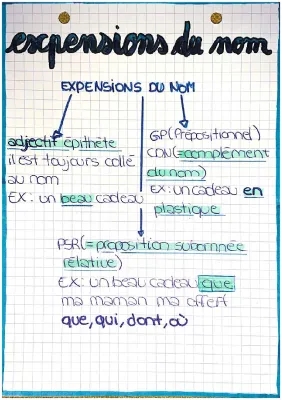 expensions du nom
EXPENSIONS DU NOM
adjectif épithète
il est toujours collé
au nom
EX: un beau cadeau
GP(Prépositionnel)
CDN(=complément
du nom)
EX: un cadeau en
plastique
PSR(=proposition subornnée
relative)
EX: un beau cadeau que
ma maman ma offert
que, qui, dont, où